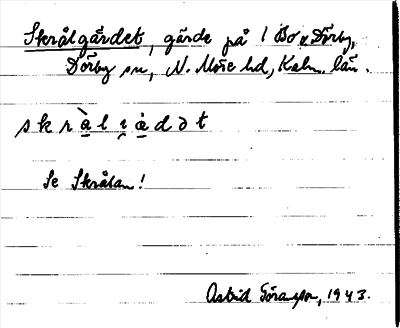 Skrålgärdet, gärde på 1 Bo, Dörby,
Dörby sn, N. Möre hd, Kalm. län.
skràlɩ̯ȧdət
Se Skrålan!
Astrid Göransson, 1943.